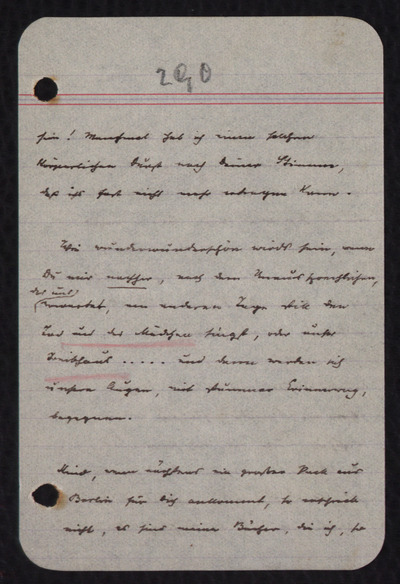 290
sein! Manchmal hab ich einen solchen
körperlichen Durst nach Deiner Stimme,
daß ichs fast nicht mehr ertragen kann.
Wie wunderwunderschön wirds sein, wenn
Du mir nachher, nach dem Unaussprechlichen,
das uns
erwartet, am anderen Tage still den
Tod und das Mädchen singst, oder unser
Treibhaus ..... und dann werden sich
unsere Augen, mit stummer Erinnerung,
begegnen.
Kind, wenn nächstens ein großes Pack aus
Berlin für Dich ankommt, so erschrick
nicht, es sind meine Bücher, die ich, so